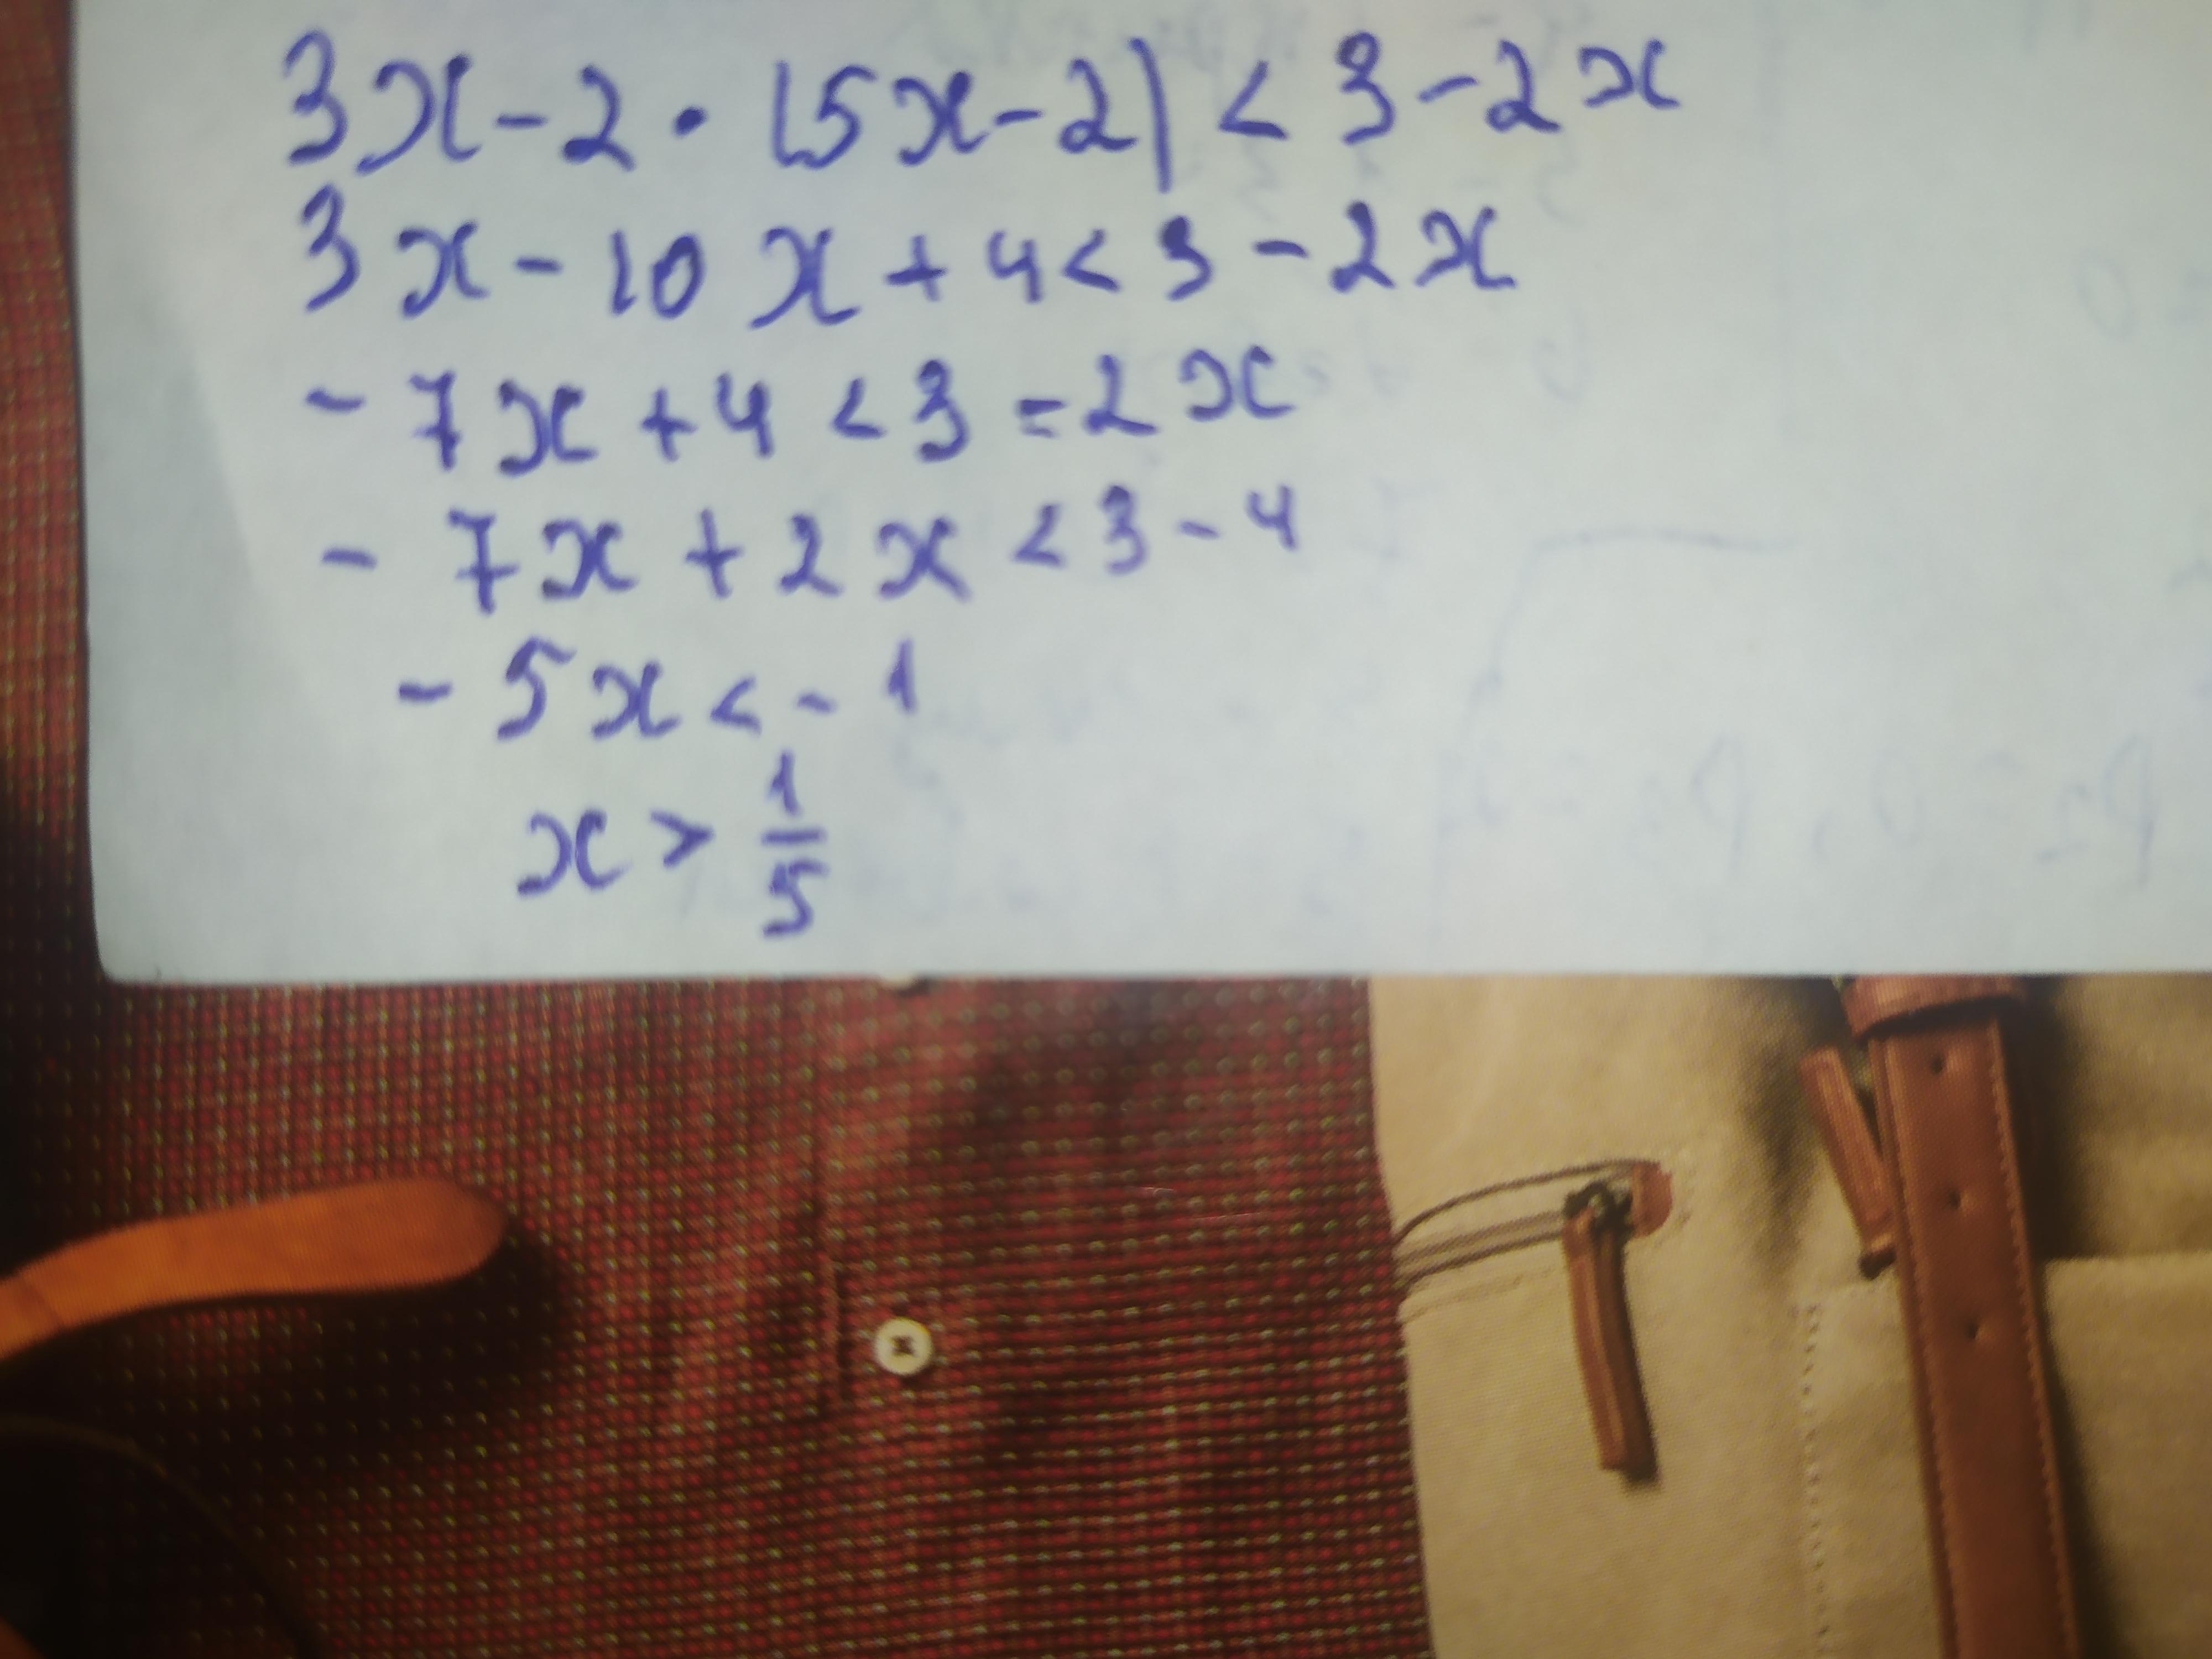 3x - 2 · (5x - 2) < 3 - 2x
3x - 10x + 4 < 3 - 2x
- 7x + 4 < 3 = 2x
- 7x + 2x < 3 - 4
- 5x < - 1
x > 1/5